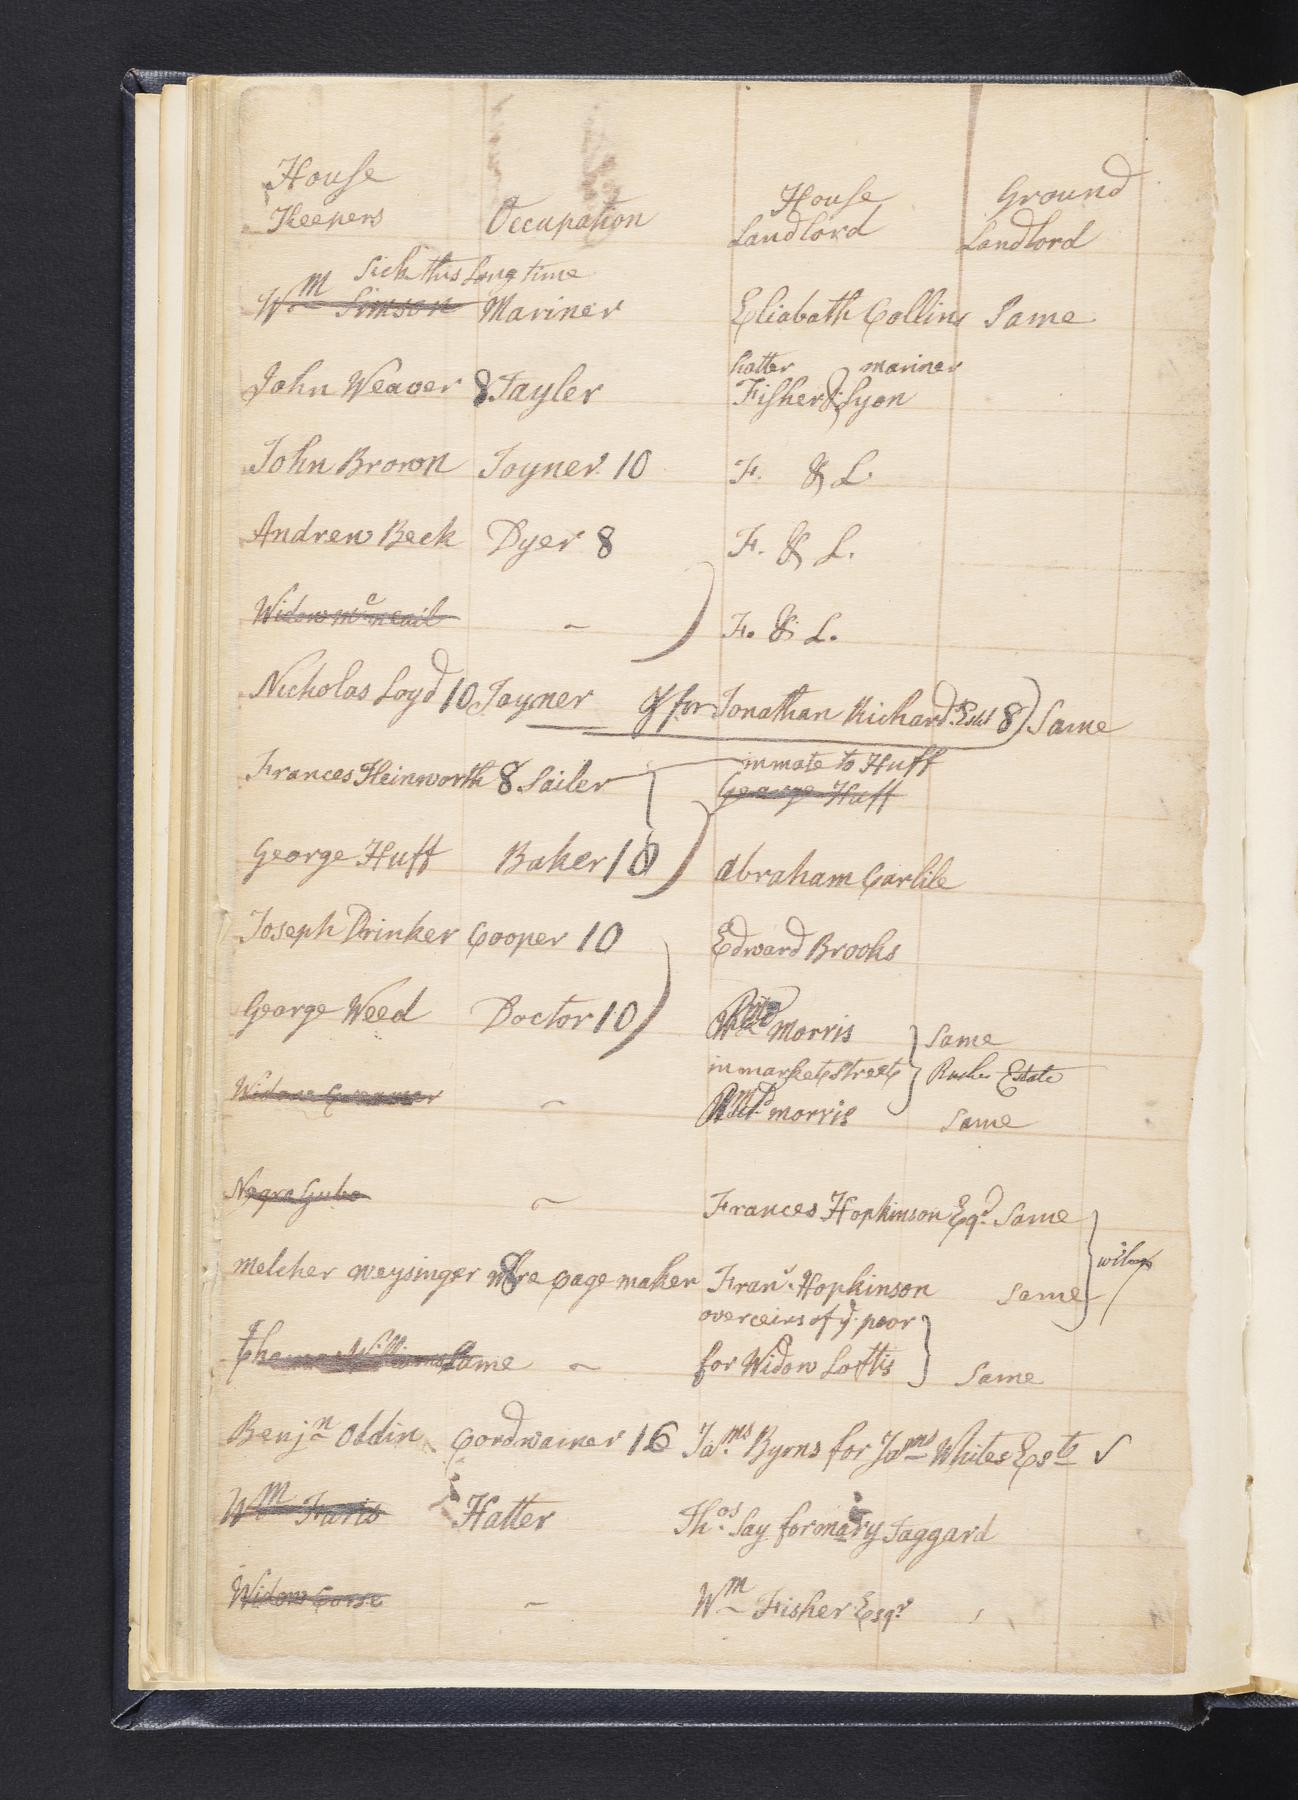 House Keepers Occupation House Landlord Ground Landlord
Sick this Long time
Wm Simson Mariner Eliabath Collins Same
hatter mariner
John Weaver 8 Tayler Fisher & Lyon
John Brown Joyner 10 F. & L.
Andrew Beck Dyer 8 F. & L.
Widow Mcneail ~ F. & L.
Nicholas Loyd 10 Joyner for Jonathan Richard Est 8 Same
inmate to Huff
Frances Heinworth 8 Sailer George Huff
George Huff Baker 10 Abraham Carlile
Joseph Drinker Cooper 10 Edward Brooks
George Weed Doctor 10 morris Same
in market street Estate
Widow ~ morris Same
Negro ~ Frances Hopkinson Esqr. Same
melcher weysinger 8 cage maker Frans. Hopkinson Same
overceirs of ye. poor
Thomas Williams Same ~ for Widow Loftis Same
Benjn Oldin Cordwainer 16 Jams. Byrns for Jams Whites Este
Wm Faris Hatter Thos. Say for mary Jaggard
Widow Corse ~ Wm Fisher Esqr.